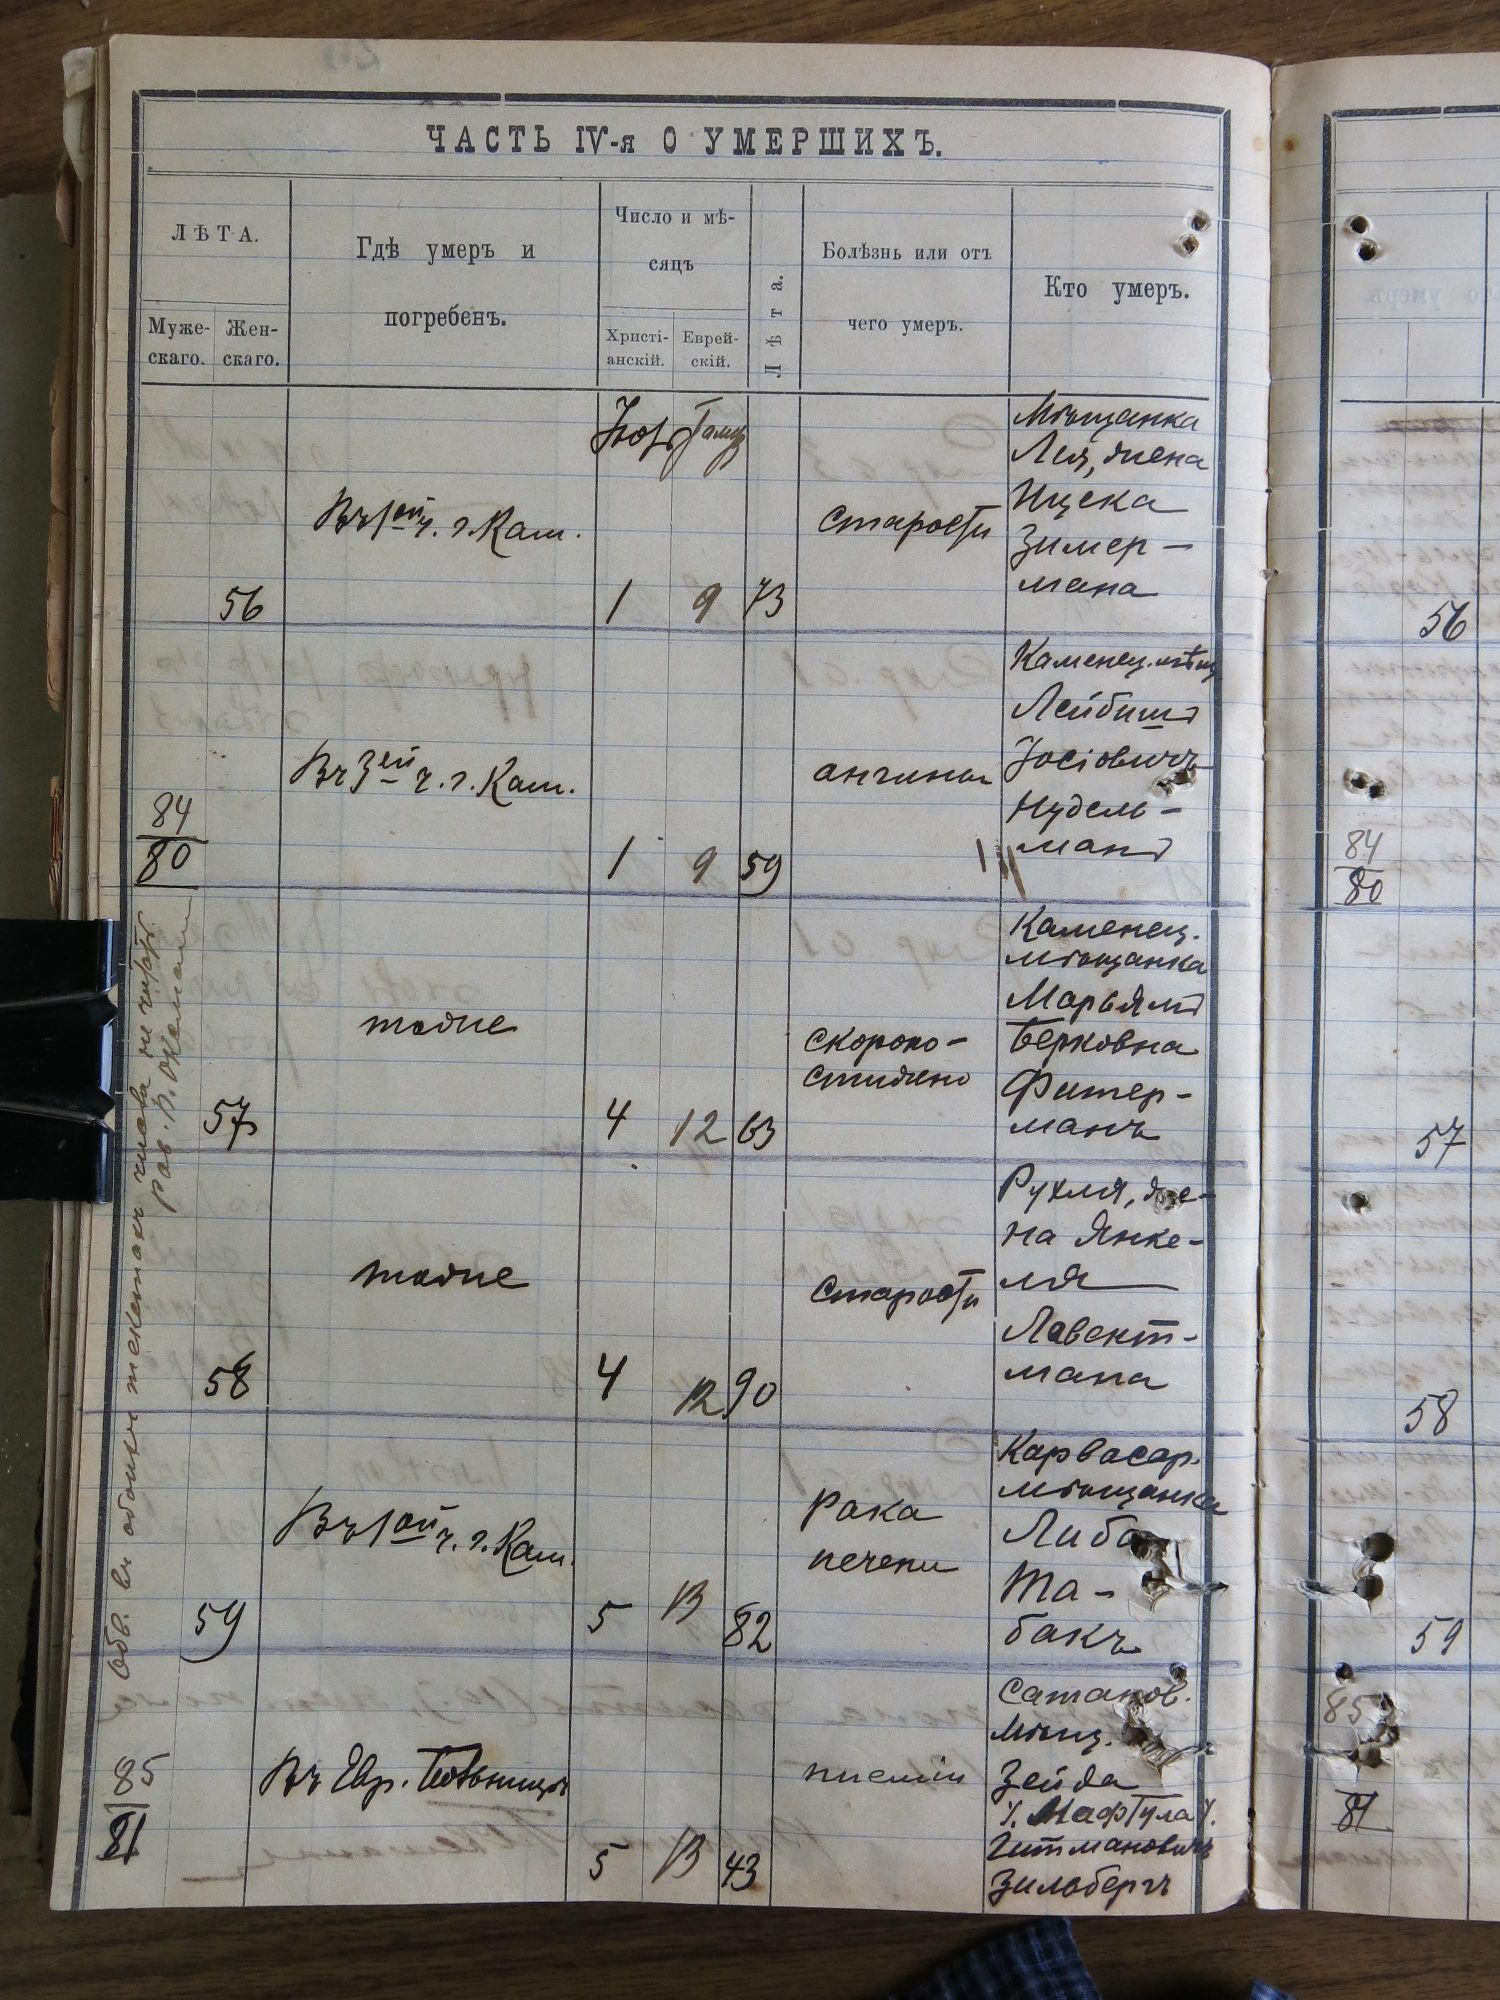 ЧАСТЬ IV-я О УМЕРШИХЪ.
ЛѢТА.
Муже-
скаго.
Жен-
скаго.
Гдѣ умеръ и
погребенъ.
Число и мѣ-
сяцъ
Христі-
анскій.
Еврей-
скій.
Лѣта.
Болѣзнь или отъ
чего умеръ.
Кто умеръ.
56
Въ 1ой ч. г. Кам.
1
9
73
старости
Мѣщанка
Лея, жена
Ицека
Зимер-
мана
56
84
80
Въ 3ей ч. г. Кам.
1
9
59
ангина
Каменец. мѣщ
Лейбишъ
Іосіовичъ
Нудель-
манъ
84
80
57
тоже
4
12
63
скоропо-
стижно
Каменец.
мѣщанка
Марьямъ
Берковна
Фитер-
манъ
57
58
тоже
4
12
90
старости
Рухля, же-
на Янке-
ля
Лавент-
мана
58
59
Въ 1ой ч. г. Кам.
5
13
82
рака
печени
Карвасар.
мѣщанка
Либа
Та-
бакъ
59
85
81
Въ Евр. Больницѣ
5
13
43
піеміи
Сатанов.
мѣщ.
Зейда
Нафтула
Гитмановичъ
Зильбергъ
85
81